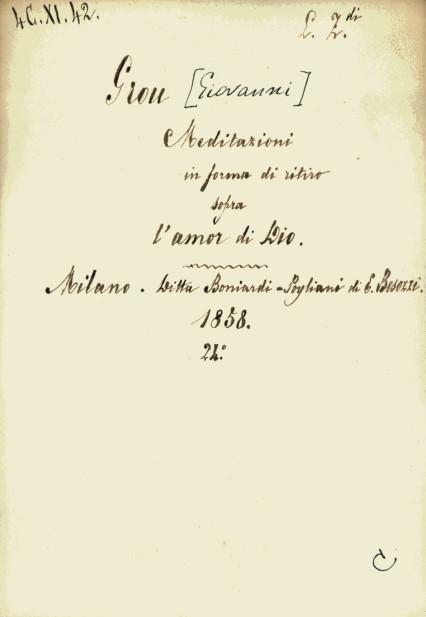 4C.XI.42.
L. 2.di
Grou [Giovanni]
Meditazioni
in forma di ritiro
sopra
l'amor di Dio.
Milano. Ditta Boniardi-Pogliani di E. Besozzi.
1858.
24°